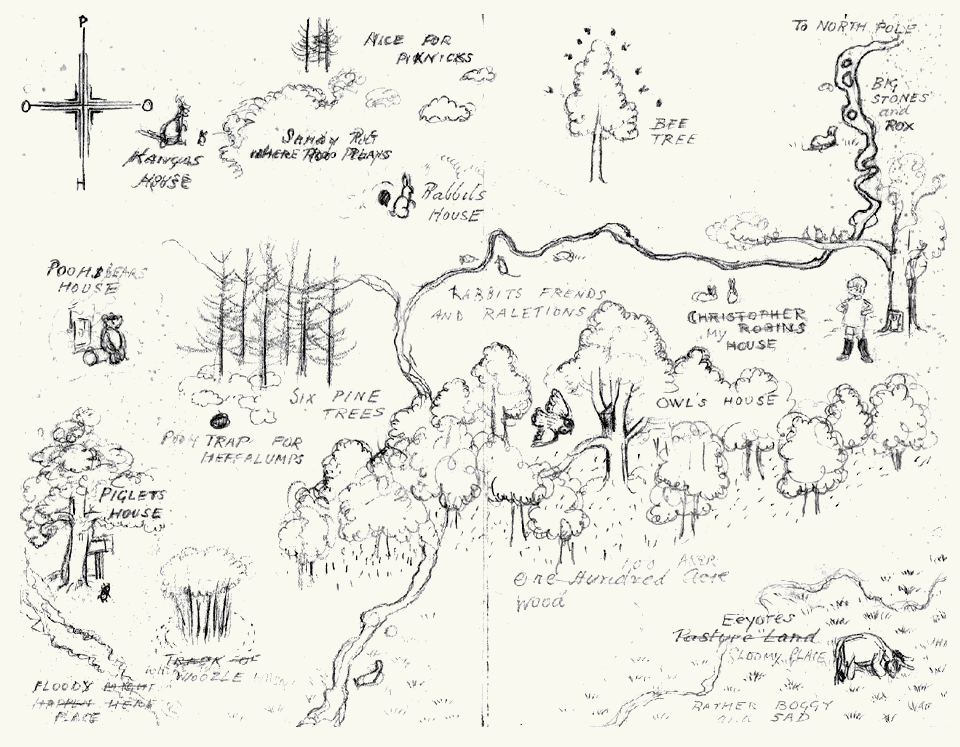 P
H
NICE FOR
PIKNICKS
TO NORTH POLE
BIG
STONES
and
ROX
BEE
TREE
KANGAS
HOUSE
SANDY PIT
WHERE ROO PLAYS
Rabbits
HOUSE
POOH BEARS
HOUSE
RABBITS FRENDS
AND RALETIONS
CHRISTOPHER
My ROBINS
HOUSE
SIX PINE
TREES
OWL'S HOUSE
POOH TRAP FOR
HEFFALUMPS
PIGLETS
HOUSE
100 AKER
One Hundred Acre
Wood
Eeyores
Pasture Land
GLOOMY PLACE
TRACK OF
WOOZLE
FLOODY MIGHT
HAPPEN HERE
PLACE
RATHER BOGGY
and SAD